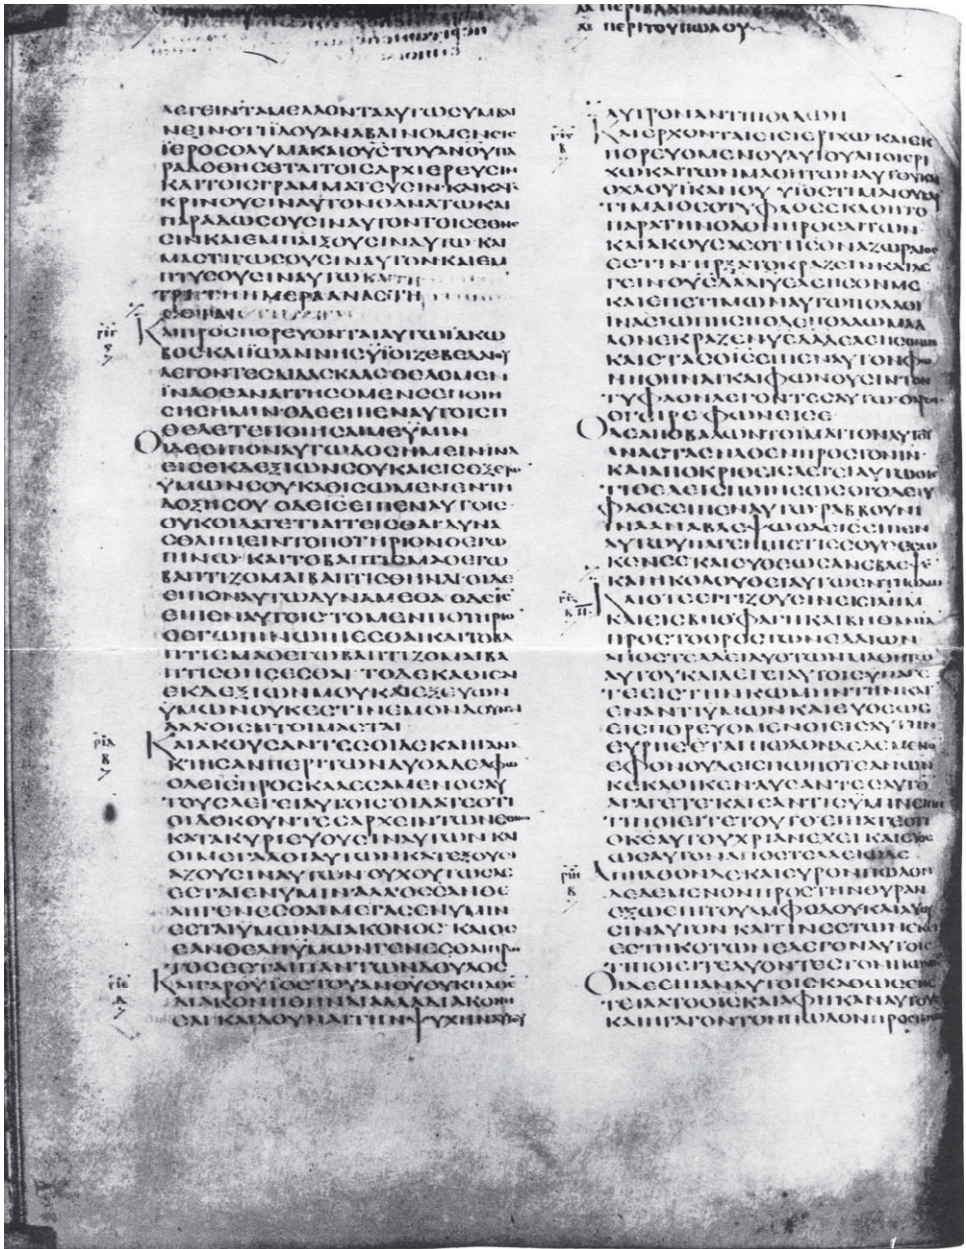 ΠΕΡΙΤΟΥΠΩΛΟΥ
ΛΕΓΕΙΝΤΑΜΕΛΛΟΝΤΑΑΥΤΩϹΥΜΒΑΙ
ΝΕΙΝΟΤΙΪΔΟΥΑΝΑΒΑΙΝΟΜΕΝΕΙϹ
ΪΕΡΟϹΟΛΥΜΑΚΑΙΟΥϹΤΟΥΑΝΟΥΠΑ
ΡΑΔΟΘΗϹΕΤΑΙΤΟΙϹΑΡΧΙΕΡΕΥϹΙΝ
ΚΑΙΤΟΙϹΓΡΑΜΜΑΤΕΥϹΙΝ·ΚΑΙΚΑΤΑ
ΚΡΙΝΟΥϹΙΝΑΥΤΟΝΘΑΝΑΤΩΚΑΙ
ΠΑΡΑΔΩϹΟΥϹΙΝΑΥΤΟΝΤΟΙϹΕΘΝΕ
ϹΙΝΚΑΙΕΜΠΑΙΞΟΥϹΙΝΑΥΤΩ ΚΑΙ
ΜΑϹΤΙΓΩϹΟΥϹΙΝΑΥΤΟΝΚΑΙΕΜ
ΠΤΥϹΟΥϹΙΝΑΥΤΩ ΚΑΙ ΤΗ
ΤΡΙΤΗΗΜΕΡΑΑΝΑϹΤΗ
ΚΑΙΠΡΟϹΠΟΡΕΥΟΝΤΑΙΑΥΤΩΪΑΚΩ
ΒΟϹΚΑΙΪΩΑΝΝΗϹΫΪΟΙΖΕΒΕΔΑΙΟΥ
ΛΕΓΟΝΤΕϹΔΙΔΑϹΚΑΛΕΘΕΛΟΜΕΝ
ΪΝΑΟΕΑΝΑΙΤΗϹΟΜΕΝϹΕΠΟΙΗ
ϹΗϹΗΜΙΝ·ΟΔΕΕΙΠΕΝΑΥΤΟΙϹΤΙ
ΘΕΛΕΤΕΠΟΙΗϹΑΙΜΕΫΜΙΝ
ΟΙΔΕΕΙΠΟΝΑΥΤΩΔΟϹΗΜΕΙΝΙΝΑ
ΕΙϹΕΚΔΕΞΙΩΝϹΟΥΚΑΙΕΙϹΕΞΕΥΩ
ΝΥΜΩΝϹΟΥΚΑΘΙϹΩΜΕΝΕΝΤΗ
ΔΟΞΗϹΟΥ ΟΔΕΙϹΕΙΠΕΝΑΥΤΟΙϹ
ΟΥΚΟΙΔΑΤΕΤΙΑΙΤΕΙϹΘΑΙ·ΔΥΝΑ
ϹΘΑΙΠΕΙΝΤΟΠΟΤΗΡΙΟΝΟΕΓΩ
ΠΙΝΩ·ΚΑΙΤΟΒΑΠΤΙϹΜΑΟΕΓΩ
ΒΑΠΤΙΖΟΜΑΙΒΑΠΤΙϹΘΗΝΑΙ·ΟΙΔΕ
ΕΙΠΟΝΑΥΤΩΔΥΝΑΜΕΘΑ·ΟΔΕΙϹ
ΕΙΠΕΝΑΥΤΟΙϹΤΟΜΕΝΠΟΤΗΡΙΟ
ΟΕΓΩΠΙΝΩΠΙΕϹΘΑΙΚΑΙΤΟΒΑ
ΠΤΙϹΜΑΟΕΓΩΒΑΠΤΙΖΟΜΑΙΒΑ
ΠΤΙϹΘΗϹΕϹΘΑΙ·ΤΟΔΕΚΑΘΙϹΑΙ
ΕΚΔΕΞΙΩΝΜΟΥΚΑΙΕΞΕΥΩΝ
ΥΜΩΝΟΥΚΕϹΤΙΝΕΜΟΝΔΟΥΝΑΙ
ΑΛΛΟΙϹΗΤΟΙΜΑϹΤΑΙ
ΚΑΙΑΚΟΥϹΑΝΤΕϹΟΙΔΕΚΑΗΓΑΝΑ
ΚΤΗϹΑΝΠΕΡΙΤΩΝΔΥΟΑΔΕΛΦΩ
ΟΔΕΙϹΠΡΟϹΚΑΛΕϹΑΜΕΝΟϹΑΥ
ΤΟΥϹΛΕΓΕΙΑΥΤΟΙϹΟΙΔΑΤΕΟΤΙ
ΟΙΔΟΚΟΥΝΤΕϹΑΡΧΕΙΝΤΩΝΕΘΝΩ
ΚΑΤΑΚΥΡΙΕΥΟΥϹΙΝΑΥΤΩΝ ΚΑΙ
ΟΙΜΕΓΑΛΟΙΑΥΤΩΝΚΑΤΕΞΟΥϹΙ
ΑΖΟΥϹΙΝΑΥΤΩΝ·ΟΥΧΟΥΤΩϹΔΕ
ΕϹΤΑΙΕΝΥΜΙΝ·ΑΛΛΟϹΕΑΝΘΕ
ΛΗΓΕΝΕϹΘΑΙΜΕΓΑϹΕΝΥΜΙΝ
ΕϹΤΑΙΥΜΩΝΔΙΑΚΟΝΟϹ·ΚΑΙΟϹ
ΕΑΝΘΕΛΗΫΜΩΝΓΕΝΕϹΘΑΙΠΡΩ
ΤΟϹΕϹΤΑΙΠΑΝΤΩΝΔΟΥΛΟϹ
ΚΑΙΓΑΡΟΥΙΟϹΤΟΥΑΝΟΥΟΥΚΗΛΘΕ
ΔΙΑΚΟΝΗΘΗΝΑΙΑΛΛΑΔΙΑΚΟΝΗ
ϹΑΙ·ΚΑΙΔΟΥΝΑΙΤΗΝΨΥΧΗΝΑΥΤΟΥ
ΛΥΤΡΟΝΑΝΤΙΠΟΛΛΩΝ
ΚΑΙΕΡΧΟΝΤΑΙΕΙϹΙΕΡΙΧΩ·ΚΑΙΕΚ
ΠΟΡΕΥΟΜΕΝΟΥΑΥΤΟΥΑΠΟΙΕΡΙ
ΧΩΚΑΙΤΩΝΜΑΘΗΤΩΝΑΥΤΟΥΚΑΙ
ΟΧΛΟΥΪΚΑΝΟΥ ΥΙΟϹΤΙΜΑΙΟΥΒΑΡ
ΤΙΜΑΙΟϹΟΤΥΦΛΟϹΕΚΑΘΗΤΟ
ΠΑΡΑΤΗΝΟΔΟΝΠΡΟϹΑΙΤΩΝ
ΚΑΙΑΚΟΥϹΑϹΟΤΙΙϹΟΝΑΖΩΡΑΙΟϹ
ΕϹΤΙΝΗΡΞΑΤΟΚΡΑΖΕΙΝΚΑΙΛΕ
ΓΕΙΝΟΥϹΔΑΔΙΥΕΛΕΗϹΟΝΜΕ
ΚΑΙΕΠΕΤΙΜΩΝΑΥΤΩΠΟΛΛΟΙ
ΪΝΑϹΙΩΠΗϹΗΟΔΕΠΟΛΛΩΜΑΛ
ΛΟΝΕΚΡΑΖΕΝΥΕΔΑΔΕΛΕΗϹΟΝΜΕ
ΚΑΙϹΤΑϹΟΙϹΕΙΠΕΝΑΥΤΟΝΦΩ
ΝΗΘΗΝΑΙ·ΚΑΙΦΩΝΟΥϹΙΝΤΟΝ
ΤΥΦΛΟΝΛΕΓΟΝΤΕϹΑΥΤΩΘΑΡϹΙ
ΕΓΕΙΡΕΦΩΝΕΙϹΕ
ΟΔΕΑΠΟΒΑΛΩΝΤΟΙΜΑΤΙΟΝΑΥΤΟΥ
ΑΝΑϹΤΑϹΗΛΘΕΝΠΡΟϹΤΟΝΙΝ·
ΚΑΙΑΠΟΚΡΙΘΕΙϹΛΕΓΕΙΑΥΤΩΟΙϹ
ΤΙΘΕΛΕΙϹΠΟΙΗϹΩϹΟΙΟΔΕΤΥ
ΦΛΟϹΕΙΠΕΝΑΥΤΩΡΑΒΒΟΥΝΙ
ΪΝΑΑΝΑΒΛΕΨΩΟΔΕΙϹΕΙΠΕΝ
ΑΥΤΩΥΠΑΓΕΗΠΙϹΤΙϹϹΟΥϹΕϹΩ
ΚΕΝϹΕ·ΚΑΙΕΥΘΕΩϹΑΝΕΒΛΕΨΕ
ΚΑΙΗΚΟΛΟΥΘΕΙΑΥΤΩΕΝΤΗΟΔΩ
ΚΑΙΟΤΕΕΓΓΙΖΟΥϹΙΝΕΙϹΙΛΗΜ
ΚΑΙΕΙϹΒΗΘΦΑΓΗΚΑΙΒΗΘΑΝΙΑ
ΠΡΟϹΤΟΟΡΟϹΤΩΝΕΛΑΙΩΝ
ΑΠΟϹΤΕΛΛΕΙΔΥΟΤΩΝΜΑΘΗΤΩ
ΑΥΤΟΥΚΑΙΛΕΓΕΙΑΥΤΟΙϹΥΠΑΓΕ
ΤΕΕΙϹΤΗΝΚΩΜΗΝΤΗΝΚΑΤ
ΕΝΑΝΤΙΥΜΩΝΚΑΙΕΥΘΕΩϹ
ΕΙϹΠΟΡΕΥΟΜΕΝΟΙΕΙϹΑΥΤΗΝ
ΕΥΡΗϹΕΤΑΙΠΩΛΟΝΔΕΔΕΜΕΝΟ
ΕΦΟΝΟΥΔΕΙϹΠΩΠΟΤΕΑΝΩΝ
ΚΕΚΑΘΙΚΕΝ·ΛΥϹΑΝΤΕϹΑΥΤΟ
ΑΓΑΓΕΤΕ·ΚΑΙΕΑΝΤΙϹΥΜΙΝΕΙΠΗ
ΤΙΠΟΙΕΙΤΕΤΟΥΤΟΕΙΠΑΤΕΟΤΙ
ΟΚϹΑΥΤΟΥΧΡΙΑΝΕΧΕΙ·ΚΑΙΕΥΘΕ
ΩϹΑΥΤΟΝΑΠΟϹΤΕΛΛΕΙΩΔΕ
ΑΠΗΛΘΟΝΔΕΚΑΙΕΥΡΟΝΠΩΛΟΝ
ΔΕΔΕΜΕΝΟΝΠΡΟϹΤΗΝΘΥΡΑΝ
ΕΞΩΕΠΙΤΟΥΑΜΦΟΔΟΥΚΑΙΛΥΟΥ
ϹΙΝΑΥΤΟΝ·ΚΑΙΤΙΝΕϹΤΩΝΕΚΕΙ
ΕϹΤΗΚΟΤΩΝΕΛΕΓΟΝΑΥΤΟΙϹ
ΤΙΠΟΙΕΙΤΕΛΥΟΝΤΕϹΤΟΝΠΩΛΟΝ
ΟΙΔΕΕΙΠΑΝΑΥΤΟΙϹΚΑΘΩϹΕΝΕ
ΤΕΙΛΑΤΟΟΙϹΚΑΙΑΦΗΚΑΝΑΥΤΟΥϹ
ΚΑΙΗΓΑΓΟΝΤΟΝΠΩΛΟΝΠΡΟϹΤΟΝ